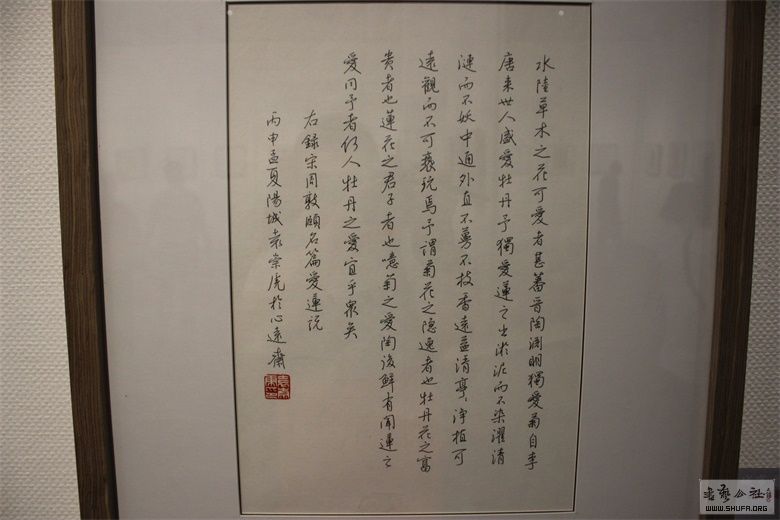 水陸草木之花可愛者甚蕃晉陶淵明獨愛菊自李
唐來世人盛愛牡丹予獨愛蓮之出淤泥而不染濯清
漣而不妖中通外直不蔓不枝香遠益清亭〻淨植可
遠觀而不可褻玩焉予謂菊花之隐逸者也牡丹花之富
贵者也蓮花之君子者也噫菊之愛陶後鮮有聞蓮之
愛同予者何人牡丹之愛宜乎衆矣
右錄宋周敦頤名篇愛蓮説
丙申孟夏陽城袁崇虎於心遠齋
書藝公社
WWW.SHUFA.ORG